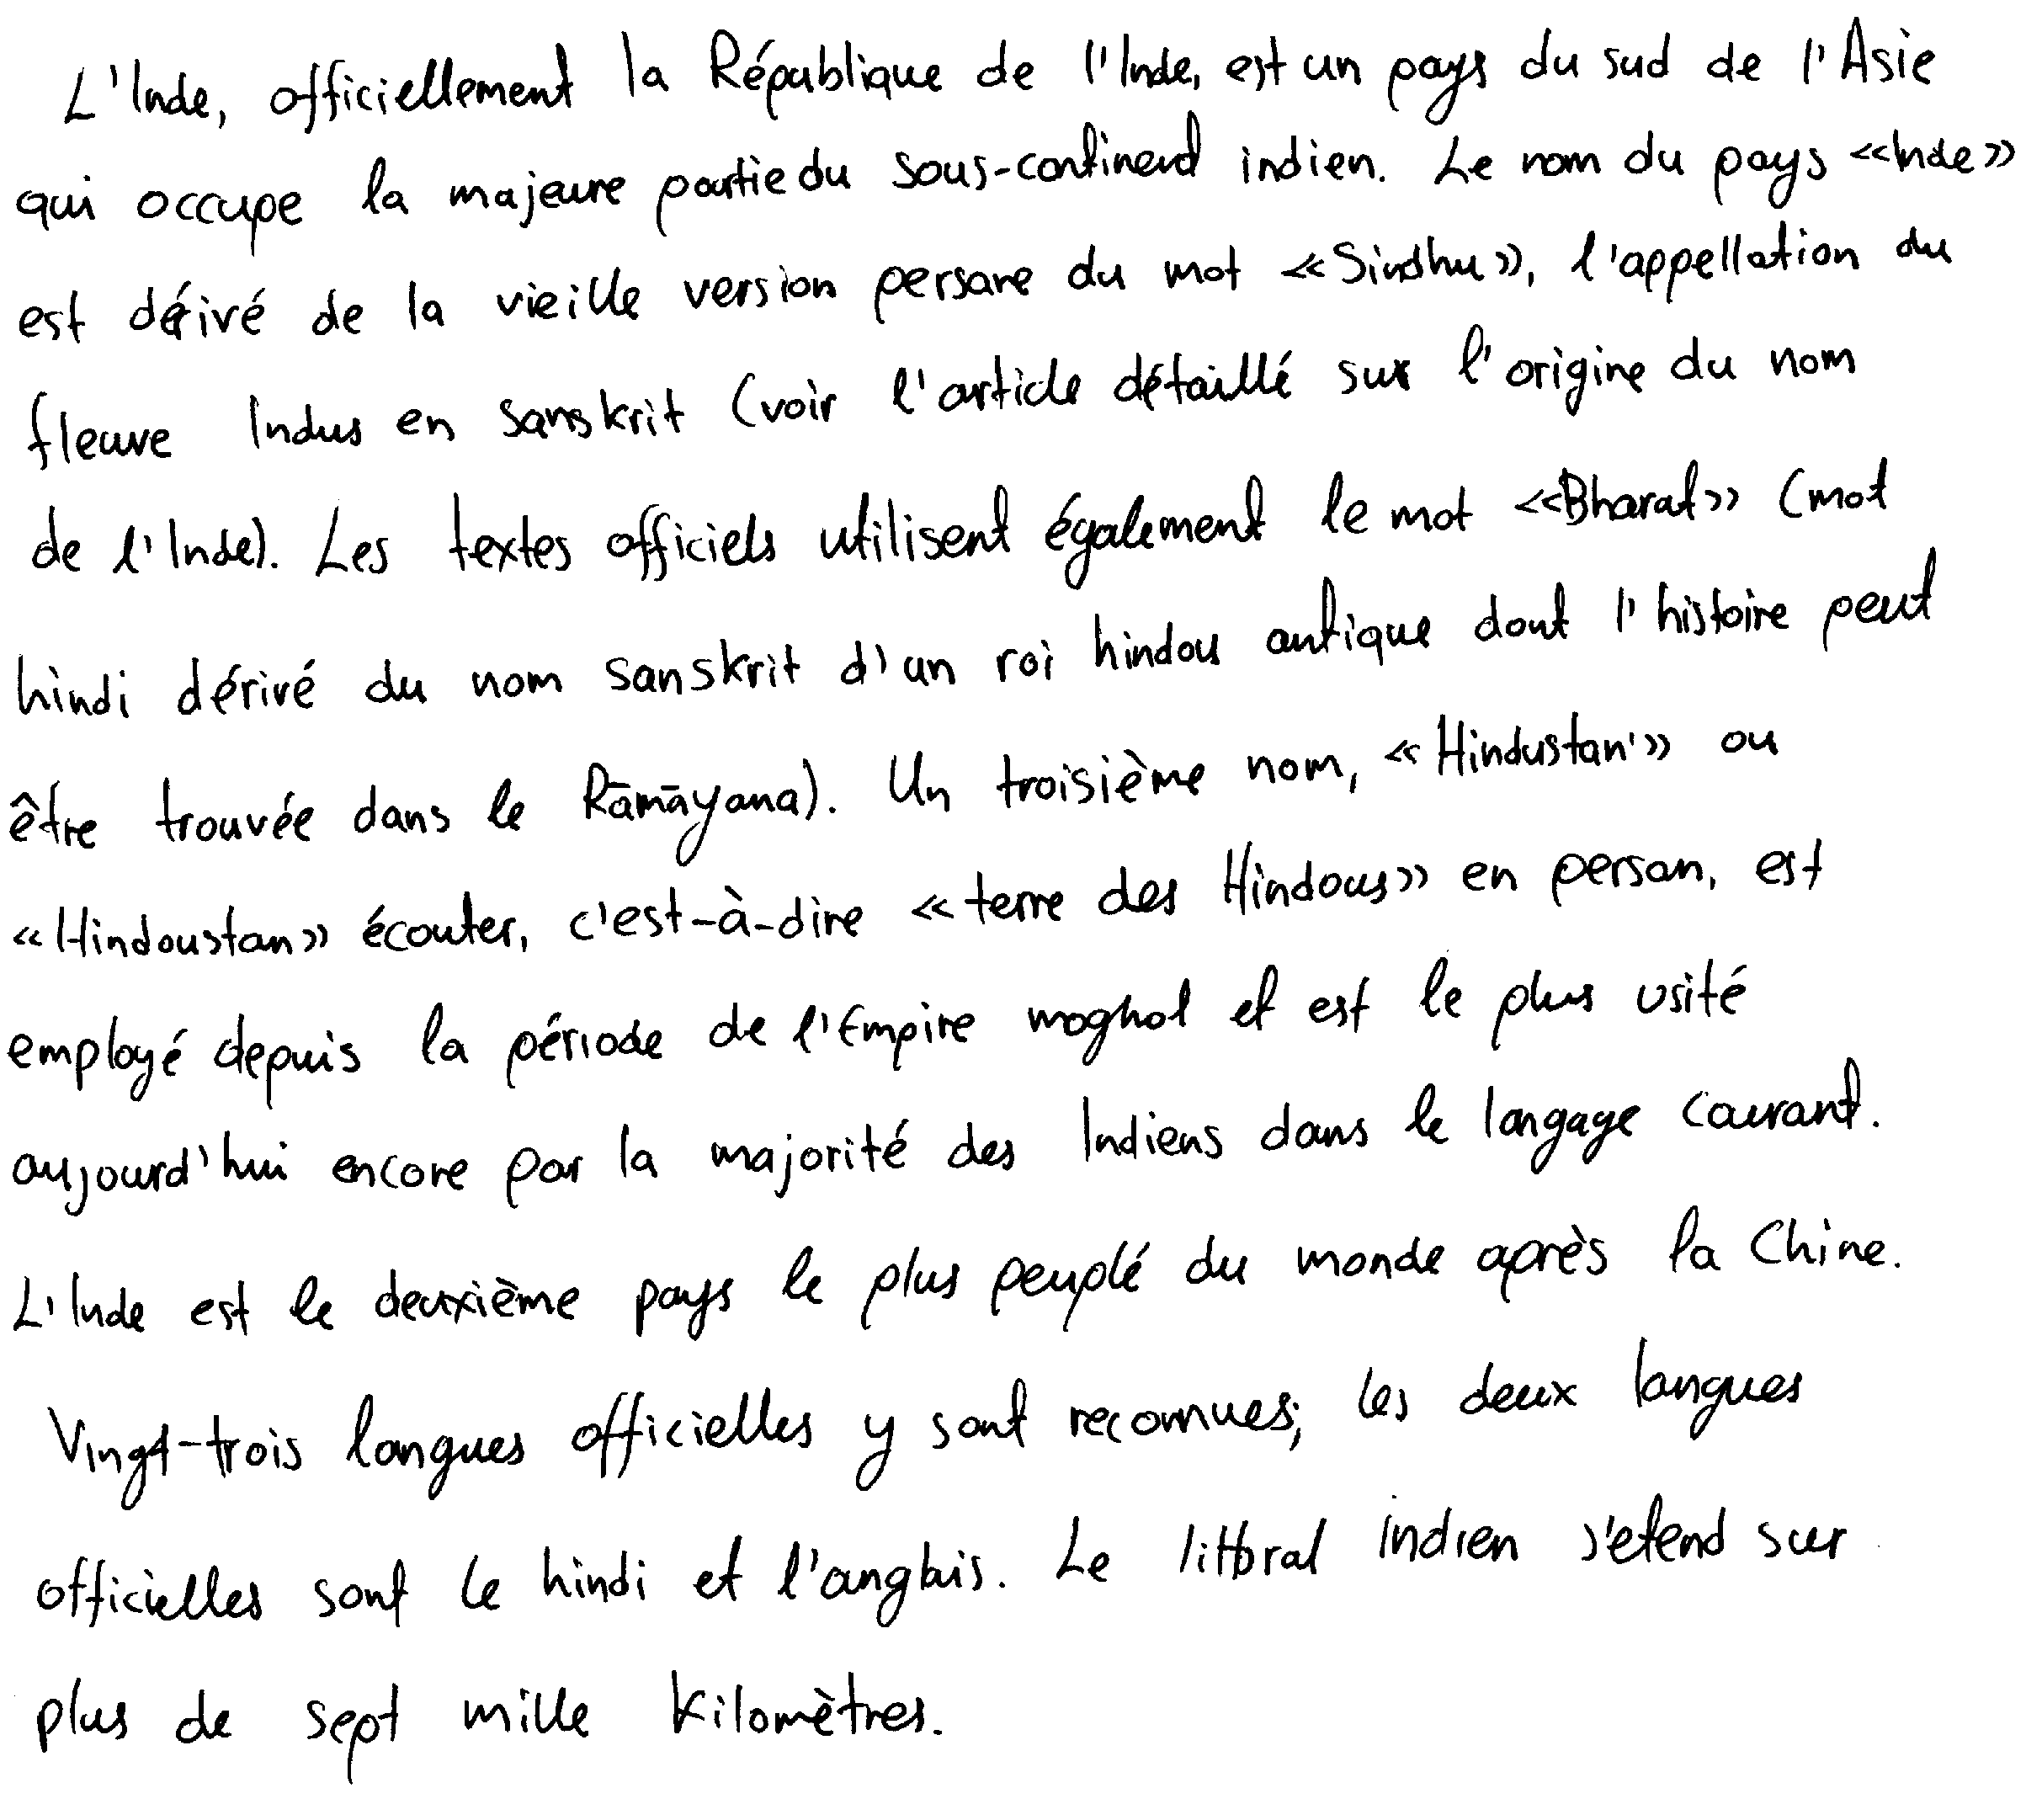 L'Inde, officiellement la République de l'Inde, est un pays du sud de l'Asie
qui occupe la majeure partie du sous-continent indien. Le nom du pays «Inde»
est dérivé de la vieille version persane du mot «Sindhu», l'appellation du
fleuve Indus en sanskrit (voir l'article détaillé sur l'origine du nom
de l'Inde). Les textes officiels utilisent également le mot «Bharat» (mot
hindi dérivé du nom sanskrit d'un roi hindou antique dont l'histoire peut
être trouvée dans le Rāmāyana). Un troisième nom, «Hindustan'» ou
«Hindoustan» écouter, c'est-à-dire «terre des Hindous» en persan, est
employé depuis la période de l'Empire moghol et est le plus usité
aujourd'hui encore par la majorité des Indiens dans le langage courant.
L'Inde est le deuxième pays le plus peuplé du monde après la Chine.
Vingt-trois langues officielles y sont reconnues; les deux langues
officielles sont le hindi et l'anglais. Le littoral indien s'etend sur
plus de sept mille kilomètres.